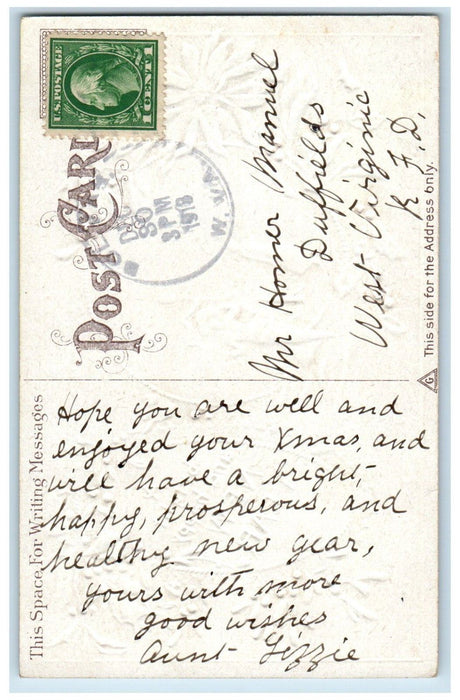 POST CARD
U.S. POSTAGE
1 CENT 1
DEC
30
3 PM
W. VA.
Mr Homer Manuel
Duffields
West Virginic
R. F. D.
This side for the Address only.
G
This Space For Writing Messages
Hope you are well and
enjoyed your Xmas, and
will have a bright,
happy, prosperous, and
healthy new year,
yours with more
good wishes
Aunt Lizzie